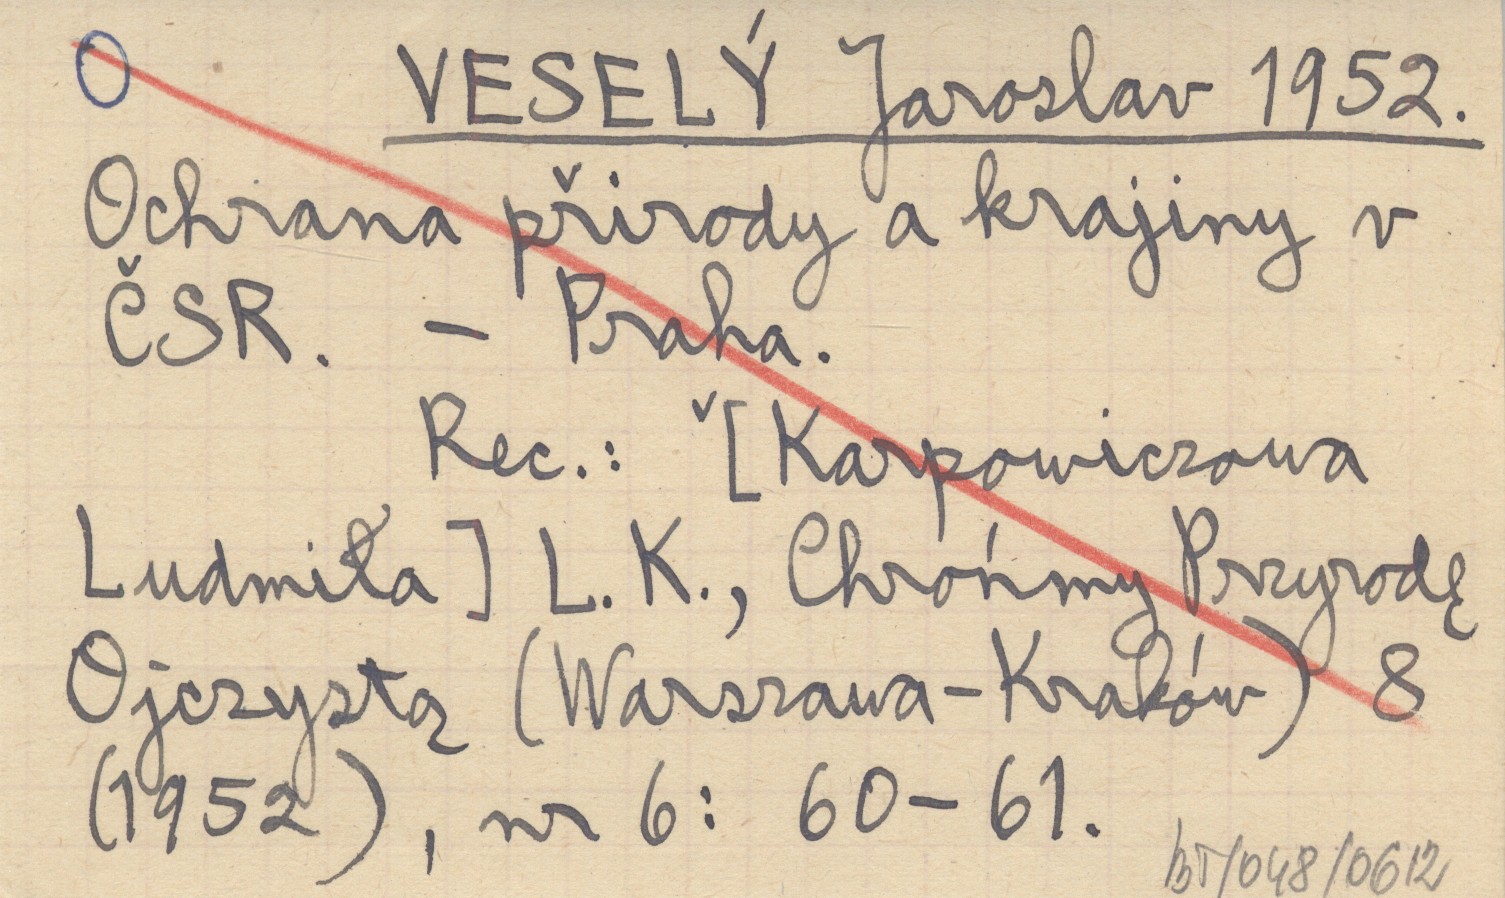 O
VESELÝ Jaroslav 1952.
Ochrana přírody a krajiny v
ČSR. – Praha.
Rec.: ˇ[Karpowiczowa
Ludmiła] L.K., Chrońmy Przyrodę
Ojczystą (Warszawa–Kraków) 8
(1952), nr 6: 60–61.
BT/048/0612